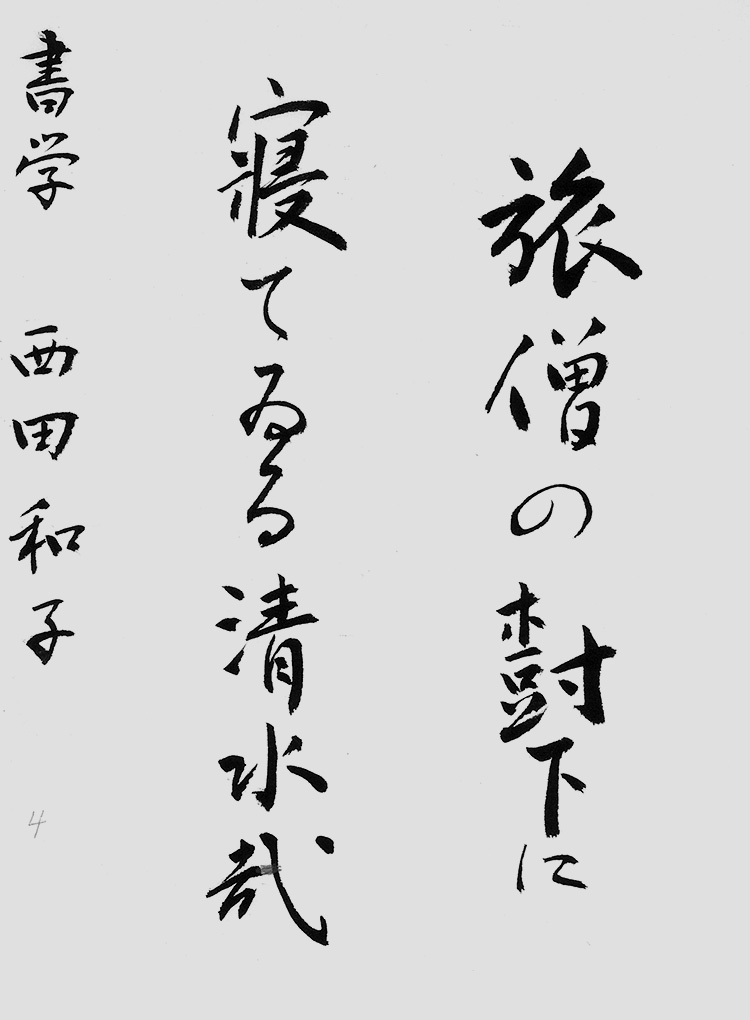 旅僧の樹下に
寢てゐる清水哉
書学 西田和子
4